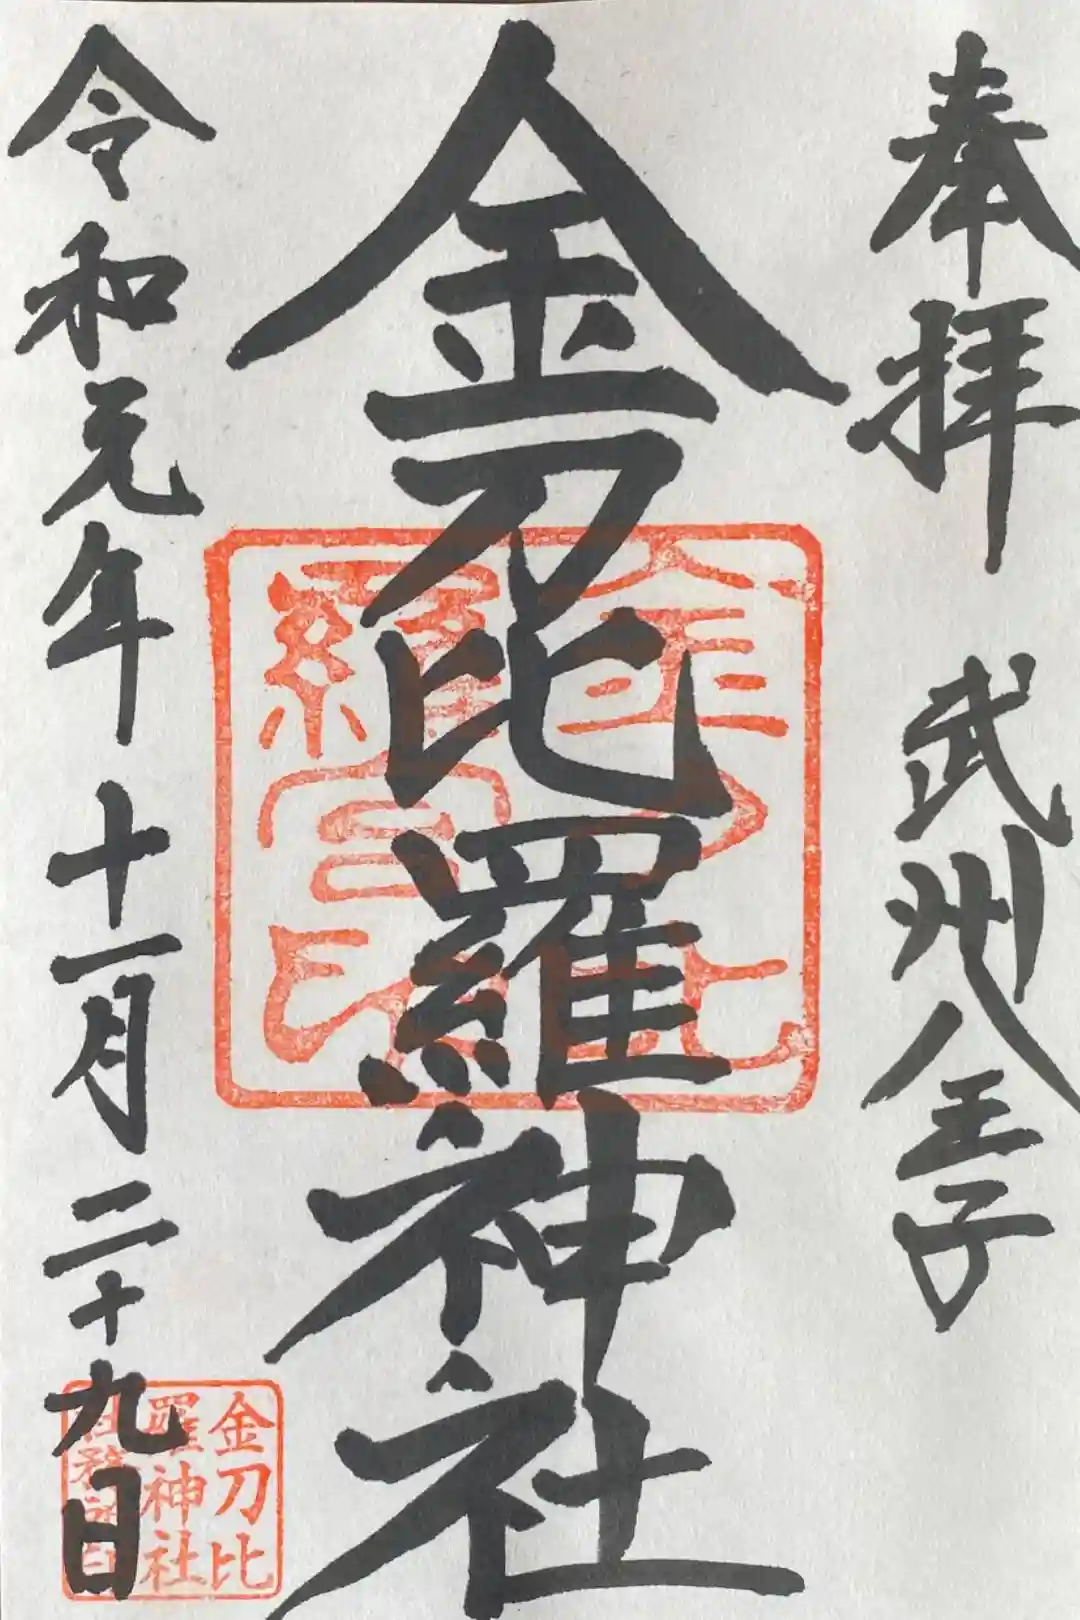 奉拝 武州八王子
金刀比羅神社
令和元年十一月二十九日
金刀比
羅神社